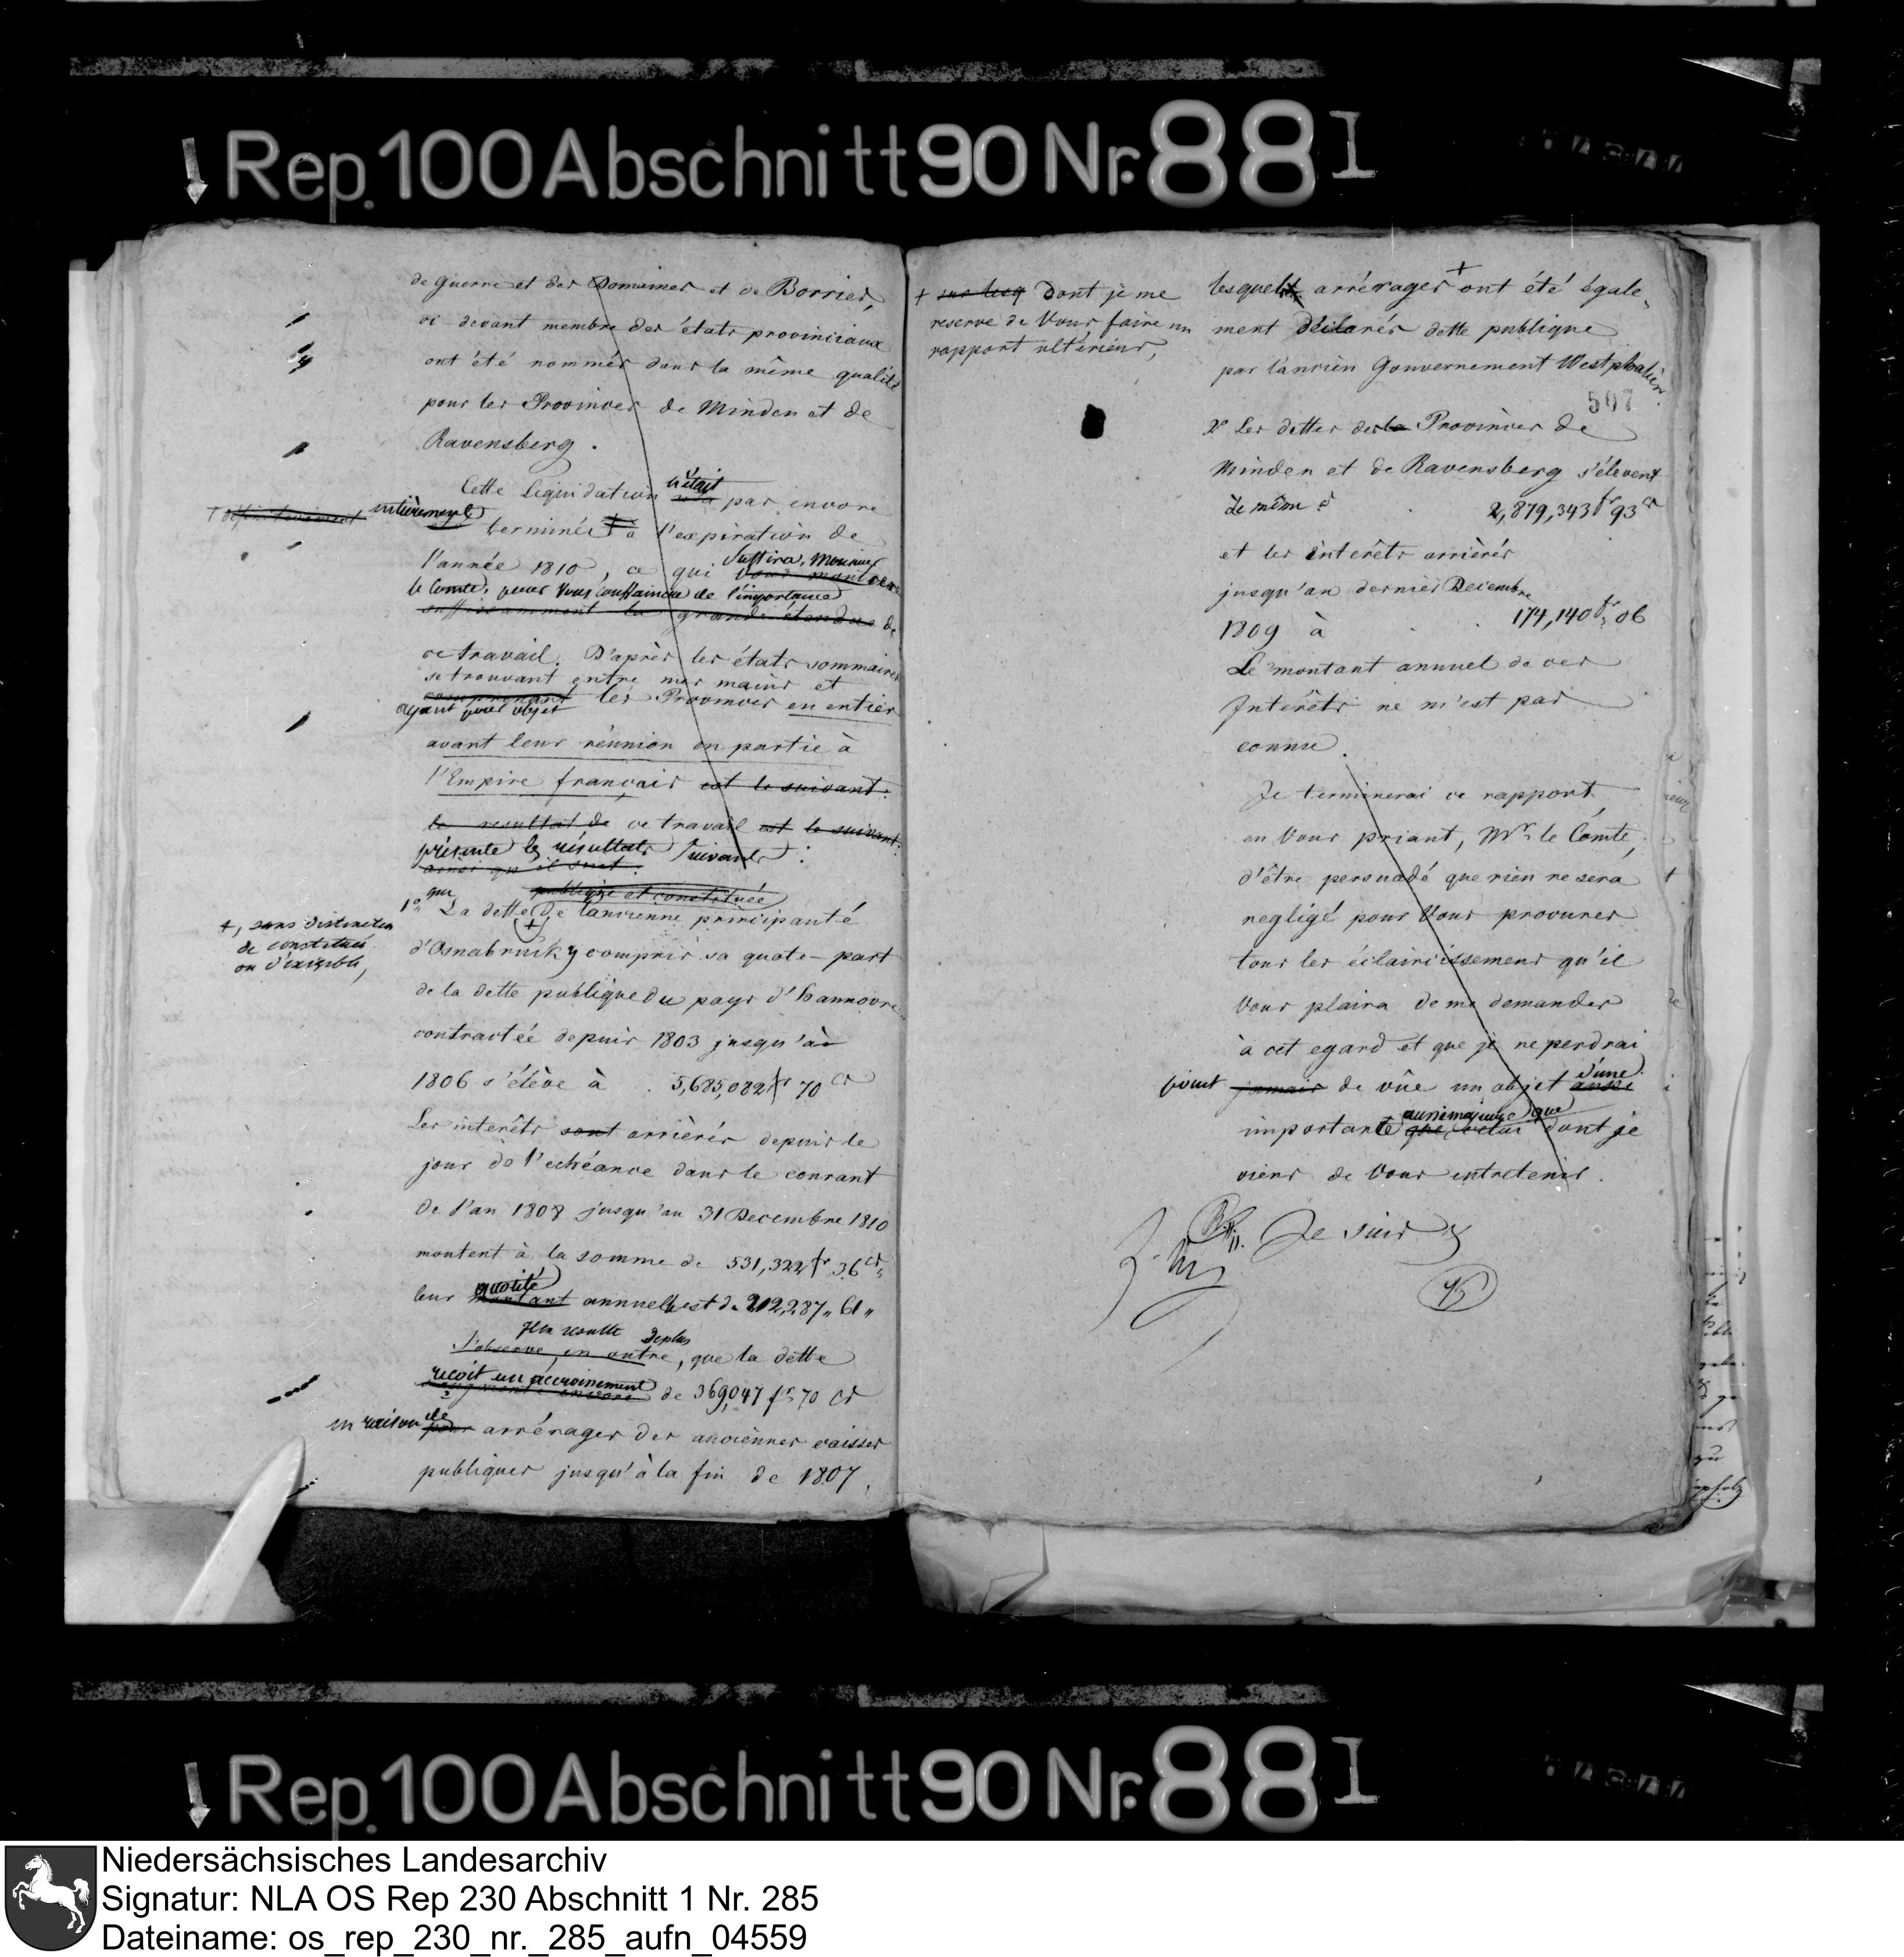 Rep. 100 Abschnitt 90 Nr. 88 I
de guerre et des Domaines et de Borries,
ci devant membre des états provinciaux
ont été nommés dans la même qualité
pour les Provinces de Minden et de
Ravensberg.
Cette liquidation n'était pas encore
† définitivement entièrement terminée † à l'expiration de
l'année 1810, ce qui vous montrera
Suffira, Monsieur
le Comte, pour Vous convaincre de l'importance
suffisamment la grande étendue de
ce travail. D'après les états sommaires
se trouvant entre mes mains et
comprenant les Provinces en entier
ayant pour objet
avant leur réunion en partie à
l'Empire français est le suivant:
le resultat de ce travail est le suivant:
présente les résultats suivants:
ainsi qu'il suit:
publique et constituée
1° que La dette de l'ancienne principauté
+, sans distinction
de constituée
ou d'exigible,
d'Osnabruck y compris sa quote-part
de la dette publique du pays d'hannovre
contractée depuis 1803 jusqu'à
1806 s'élève à . 5,685,082 fr 70 cs
Les interêts sont arriérés depuis le
jour de l'echéance dans le courant
de l'an 1808 jusqu'au 31 Decembre 1810
montent à la somme de 531,322 fr 36 cs
leur montant annuel est de 212,287 „ 61 „
quotité
Il en résulte de plus
J'observe, en outre, que la dette
reçoit un accroissement
augmente encore de 369,047 fr 70 cs
en raison de pour arrérages des anciennes caisses
publiques jusqu'à la fin de 1807,
+ sur lesq dont je me
reserve de Vous faire un
rapport ultérieur,
lesquels arrérages + ont été égale-
ment déclarés dette publique
par l'ancien Gouvernement Westphalien.
507
2° Les dettes des Provinces de
Minden et de Ravensberg s'élevent
de même à . 2,879,343 fr 93 cs
et les interêts arriérés
jusqu'au dernier Decembre
1809 à . . 174,140 fr 06
Le montant annuel de ces
Intérêts ne m'est pas
connu.
Je terminerai ce rapport
en Vous priant, Mr. le Comte,
d'être persuadé que rien ne sera
negligé pour Vous procurer
tous les éclaircissemens qu'il
Vous plaira de me demander
à cet egard et que je ne perdrai
point jamais de vûe un objet aussi
d'une
importance que celui dont je
aussi majeure que
viens de Vous entretenir.
Je suis
Rep. 100 Abschnitt 90 Nr. 88 I
Niedersächsisches Landesarchiv
Signatur: NLA OS Rep 230 Abschnitt 1 Nr. 285
Dateiname: os_rep_230_nr._285_aufn_04559